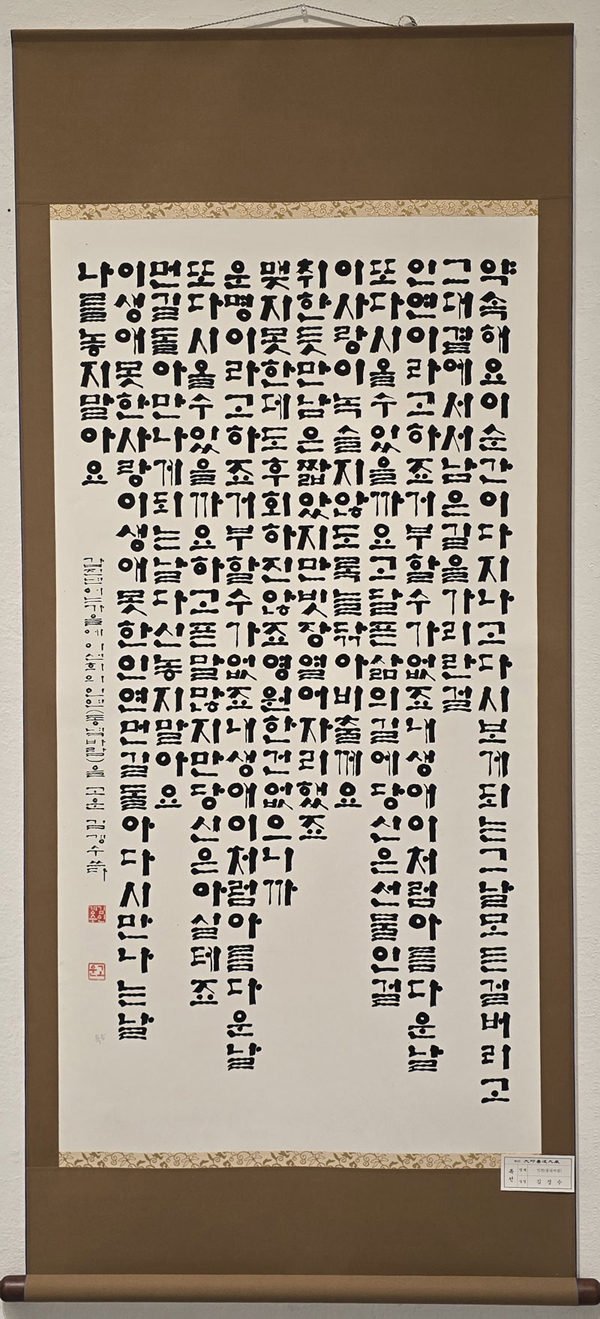 약속해요이순간이다지나고다시보게되는그날모든걸버리고
그대곁에서서남은길을가리란걸
인연이라고하죠거부할수가없죠내생애이처럼아름다운날
또다시올수있을까요고달픈삶의길에당신은선물인걸
이사랑이녹슬지않도록늘닦아비출께요
취한듯만남은짧았지만빗장열어자리했죠
맺지못한데도후회하진않죠영원한건없으니까
운명이라고하죠거부할수가없죠내생애이처럼아름다운날
또다시올수있을까요하고픈말많지만당신은아실테죠
먼길돌아만나게되는날다신놓지말아요
이생애못한사랑이생애못한인연먼길돌아다시만나는날
나를놓지말아요
가을에 이선희의 인연(동녘바람)을 고운 김경수
고운
김경수